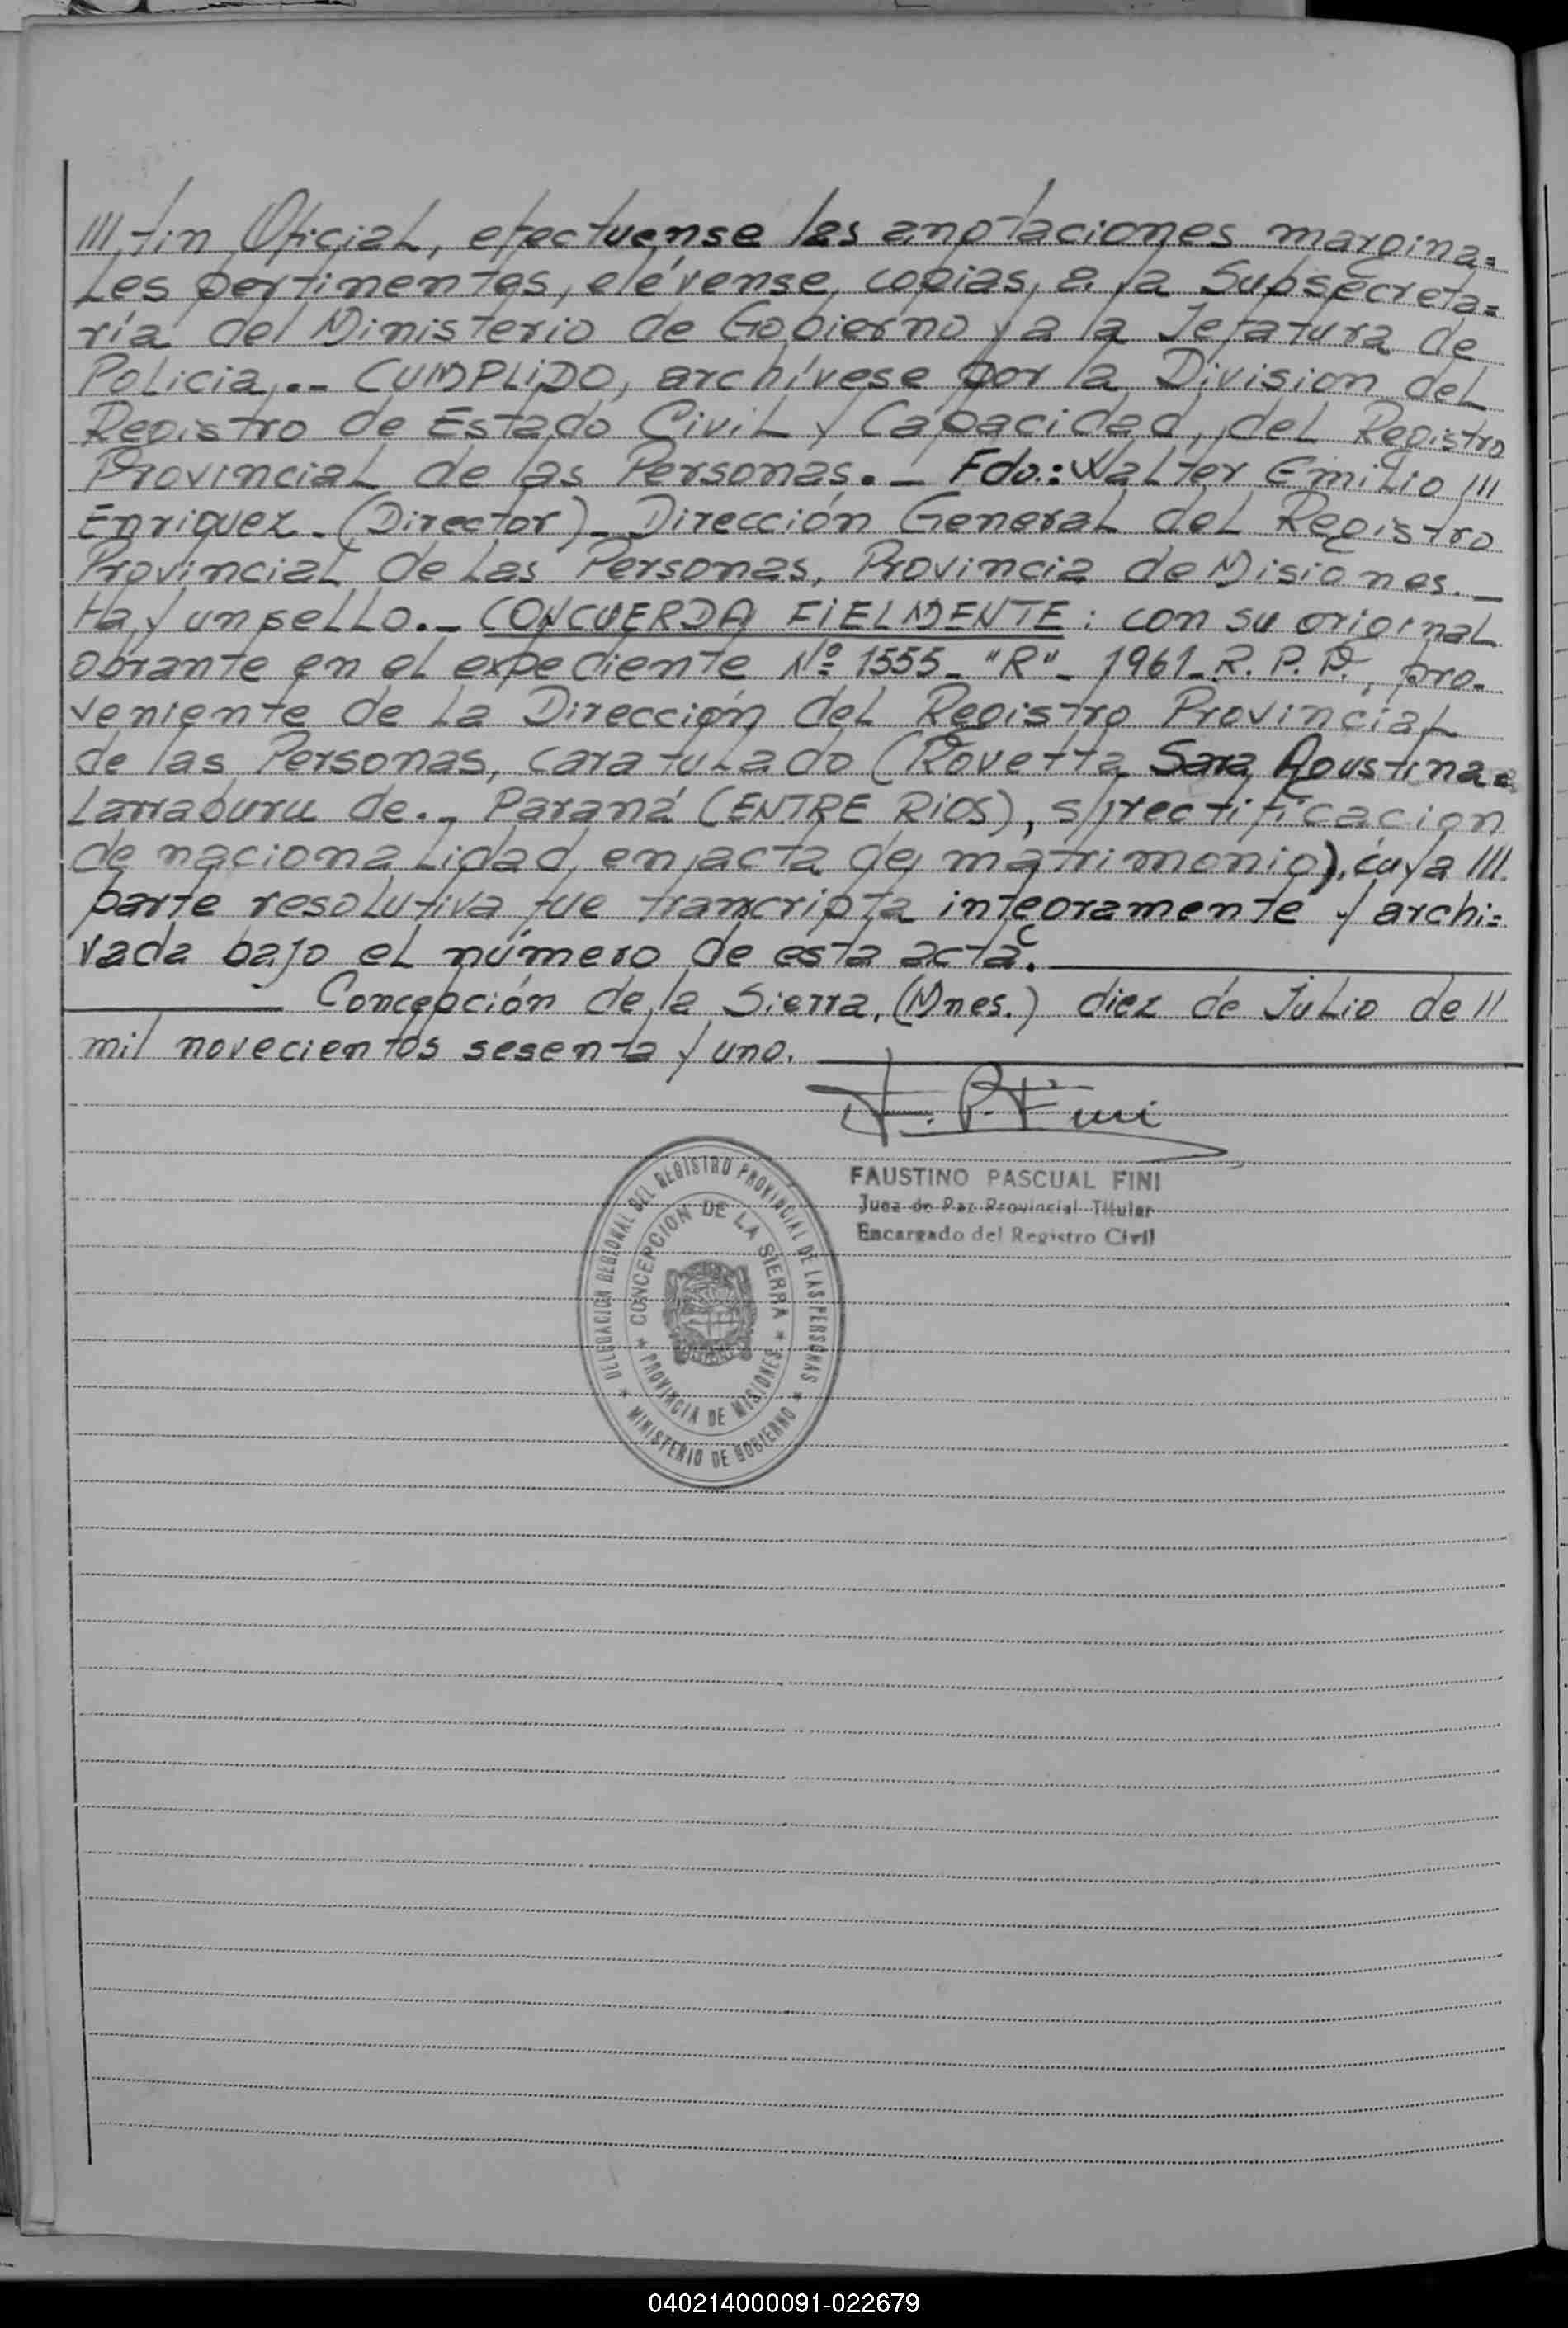 III tin Oficial, efectuense las anotaciones margina=
les pertinentes, elévense, copias, a la Subsecreta=
ría del Ministerio de Gobierno y a la Jefatura de
Policia.- CUMPLIDO, archívese por la Division del
Registro de Estado Civil y Capacidad, del Registro
Provincial de las Personas.- Fdo.: Walter Emilio III
Enriquez-(Director)-Dirección General del Registro
Provincial de las Personas, Provincia de Misiones.-
Hay un sello.- CONCUERDA FIELMENTE: con su original
obrante en el expediente Nº 1555-"R"-1961-R.P.P., pro-
veniente de la Dirección del Registro Provincial
de las Personas, caratulado (Rovetta Sara Agustina=
Larraburu de.- Paraná (ENTRE RIOS), s/rectificacion
de nacionalidad en acta de matrimonio), cuya III
parte resolutiva fue trancripta integramente y archi=
vada bajo el número de esta acta.
Concepción de la Sierra, (Mnes.) diez de Julio de II
mil novecientos sesenta y uno.
F. P. Fini
FAUSTINO PASCUAL FINI
Juez de Paz Provincial Titular
Encargado del Registro Civil
DELEGACION REGIONAL DEL REGISTRO PROVINCIAL DE LAS PERSONAS
CONCEPCION DE LA SIERRA
PROVINCIA DE MISIONES
MINISTERIO DE GOBIERNO
040214000091-022679